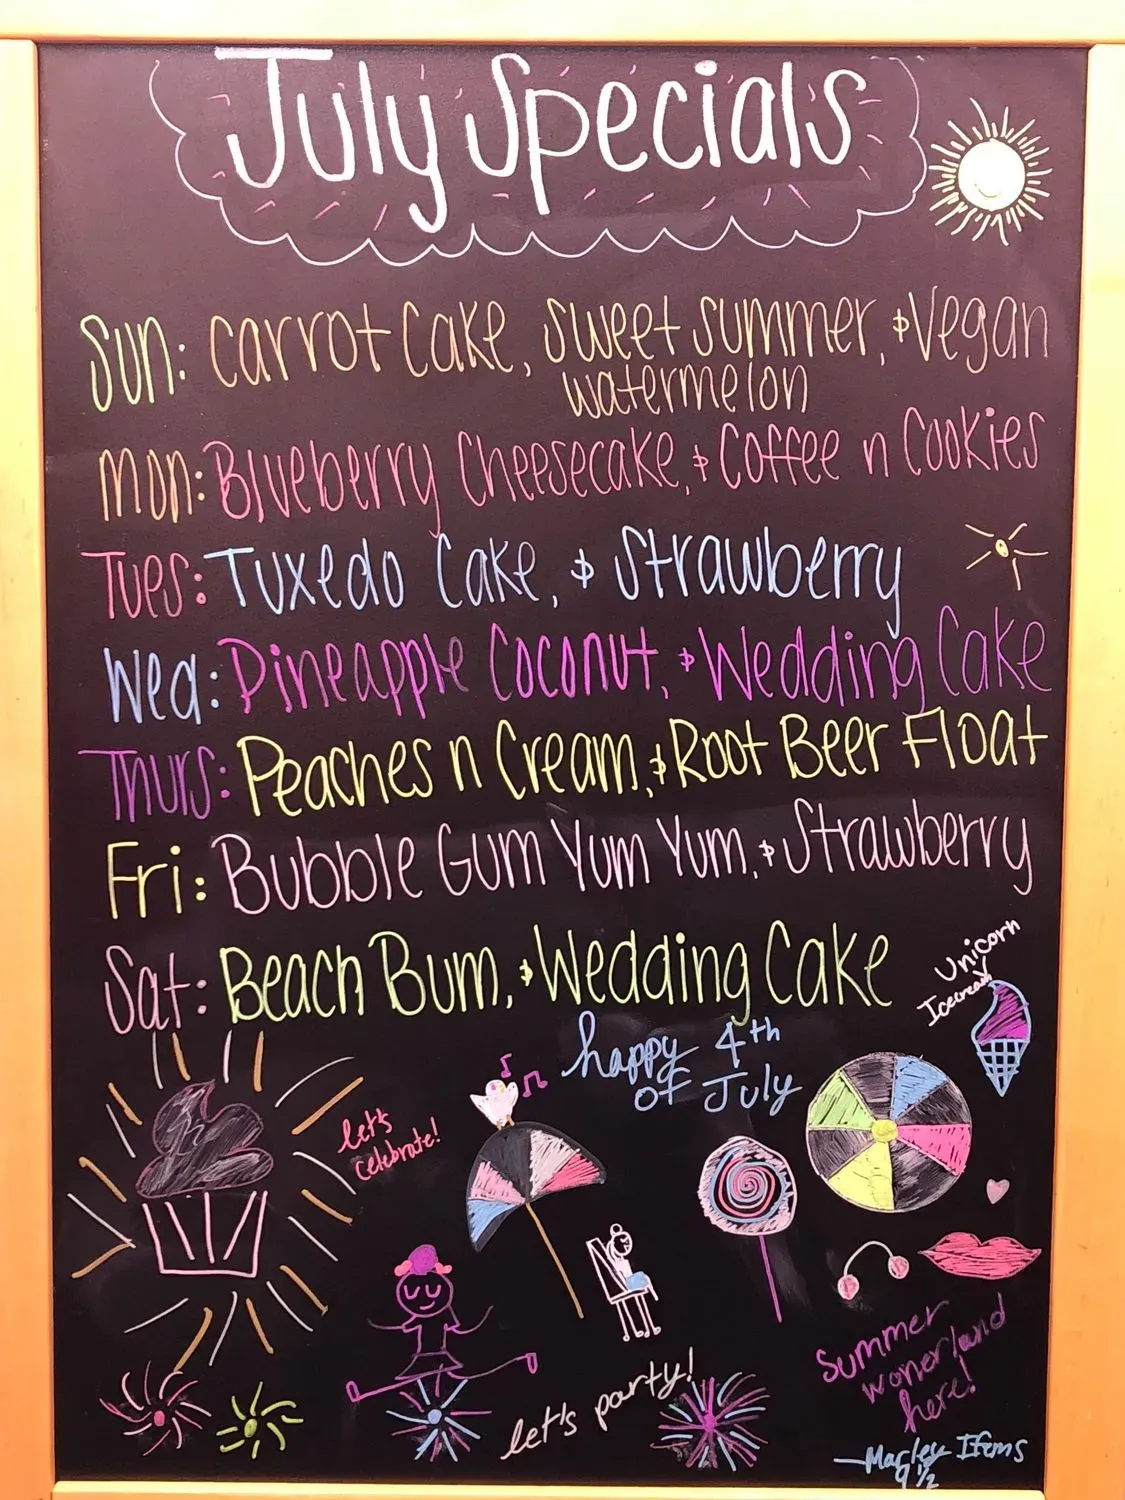 July Specials
Sun: Carrot Cake, Sweet Summer, & Vegan
Watermelon
Mon: Blueberry Cheesecake, & Coffee n Cookies
Tues: Tuxedo Cake, & Strawberry
Wed: Pineapple Coconut, & Wedding Cake
Thurs: Peaches n Cream, & Root Beer Float
Fri: Bubble Gum Yum Yum, & Strawberry
Sat: Beach Bum, & Wedding Cake
Unicorn
Icecream
happy 4th
of July
let's
celebrate!
let's party!
Summer
wonerland
here!
—Marley
9 1/2